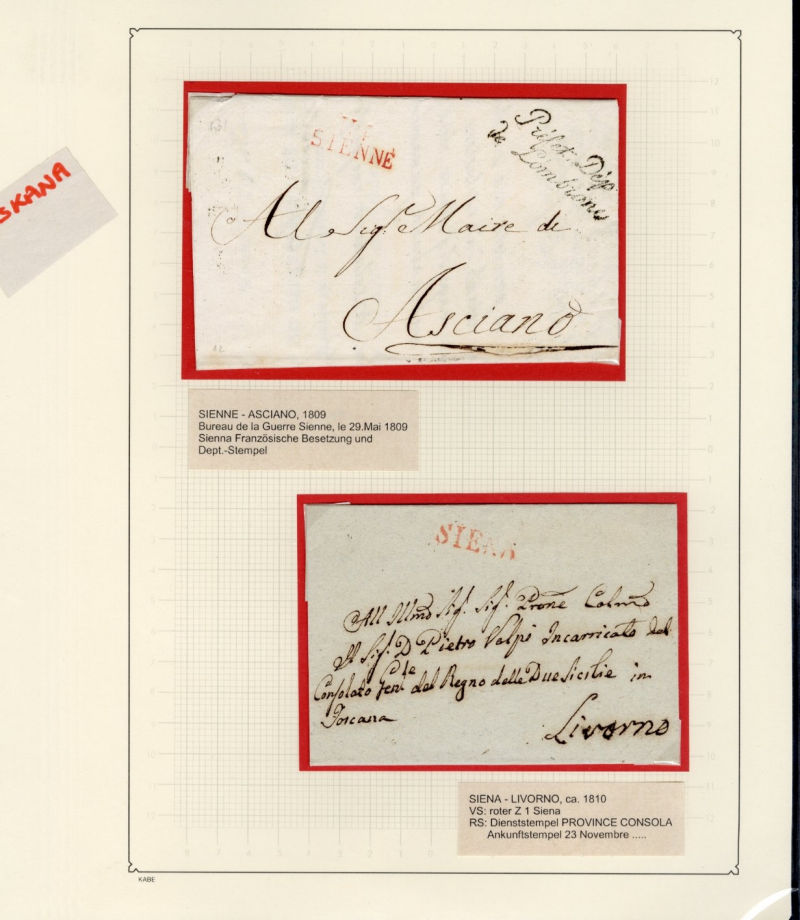 SKANA
SIENNE
Préfet. Dép
de L'Ombrone
Al Sigr. Maire di
Asciano
SIENNE - ASCIANO, 1809
Bureau de la Guerre Sienne, le 29.Mai 1809
Sienna Französische Besetzung und
Dept.-Stempel
SIENA
All Illmo Sig. Sig. Prone Colmo
Il Sig. D Pietro Volpi Incarricato del
Consolato Genle del Regno delle Due Sicilie in
Toscana
Livorno
SIENA - LIVORNO, ca. 1810
VS: roter Z 1 Siena
RS: Dienststempel PROVINCE CONSOLA
Ankunftstempel 23 Novembre .....
KABE